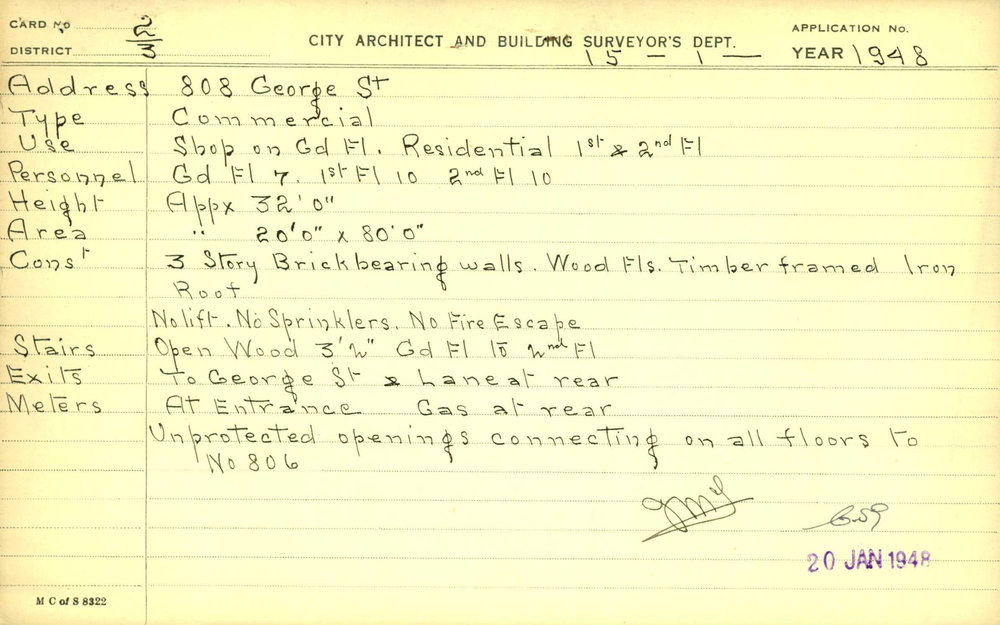 CARD No 2
DISTRICT 3
CITY ARCHITECT AND BUILDING SURVEYOR'S DEPT.
APPLICATION No.
15 - 1 - YEAR 1948
Address 808 George St
Type Commercial
Use Shop on Gd Fl. Residential 1st & 2nd Fl
Personnel Gd Fl 7. 1st Fl 10 2nd Fl 10
Height Appx 32'0"
Area " 20'0" x 80'0"
Const 3 Story Brick bearing walls. Wood Fls. Timber framed Iron
Roof
No lift. No Sprinklers. No Fire Escape
Stairs Open Wood 3'2" Gd Fl to 2nd Fl
Exits To George St & Lane at rear
Meters At Entrance Gas at rear
Unprotected openings connecting on all floors to
No 806
20 JAN 1948
M C of S 8322